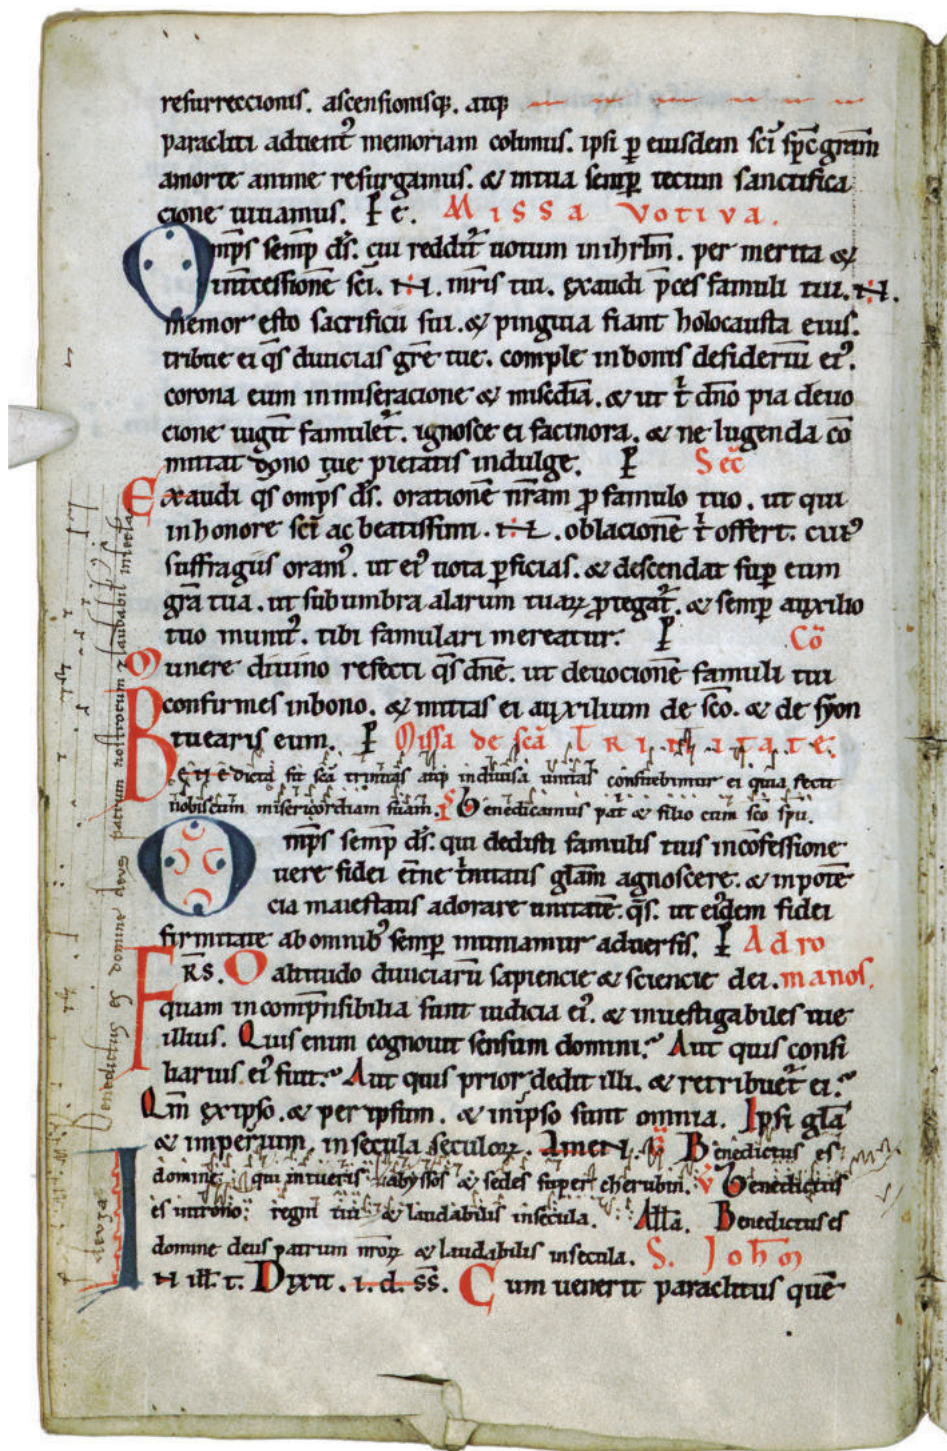 resurrectionis. ascensionisq;. atq;
paracliti aduent᾽ memoriam colimus. ipsi p̱ eiusdem sc̄i sp̄c gr̄am
amorte anime resurgamus. & intua semp̱ tecum sanctifica
cione uiuamus. P e. Missa votiva.
Omp̄s semp̱ dṡ. cui reddit᾽ uotum inihrl̄m. per merita &
int̄cessionē sc̄i. N. mr̄is tui. exaudi p̄ces famuli tui. N.
memor esto sacrificii sui. & pinguia fiant holocausta eius.
tribue ei q̄s diuicias gr̄e tue. comple inbonis desideriū ei᾽.
corona eum in miseracione & misēdia. & ut t̄ dn̄o pia deuo
cione iugit̄ famulet᾽. ignosce ei facinora. & ne lugenda cō
mittat dono tue pietatis indulge. P Sec̄
Exaudi q̄s omp̄s dṡ. orationē nr̄am p̱ famulo tuo. ut qui
inhonore sc̄i ac beatissimi. N. oblacionē t̄ offert. cui᾽
suffragiis oram᾽. ut ei᾽ uota p̱ficias. & descendat sup̱ eum
gr̄a tua. ut sub umbra alarum tuaꝝ p̱tegat᾽. & semp̱ auxilio
tuo munit᾽. tibi famulari mereatur. P Cō
Munere diuino refecti q̄s dn̄e. ut deuocionē famuli tui
confirmes inbono. & mittas ei auxilium de sc̄o. & de syon
tuearis eum. P Missa de sc̄a Trinitate.
Benedicta sit sc̄a trinitas atq; indiuisa unitas confitebimur ei quia fecit
nobiscum misericordiam suam. Benedicamus pat̄ & filio cum sc̄o sp̄u.
Omp̄s semp̱ dṡ. qui dedisti famulis tuis incōfessione
uere fidei et̄ne t̄nitatis gl̄am agnoscere. & inpotē
cia maiestatis adorare unitatē. q̄s. ut ei᾽dem fidei
firmitate ab omnib᾽ semper muniamur aduersis. P Ad ro
FRS. O altitudo diuiciarū sapiencie & sciencie dei. manos.
quam incomp̄nsibilia sunt iudicia ei᾽. & inuestigabiles uie
illius. Quis enim cognouit sensum domini? Aut quis consi
liarius ei᾽ fuit? Aut quis prior dedit illi. & retribuet᾽ ei?
Qm̄ exipso. & per ipsum. & inipso sunt omnia. Ipsi gl̄a
& imperium. in secula seculoꝝ. Amen. Benedictus es
domine qui intueris abyssos & sedes super cherubin. V Benedictus
es introno regni tui & laudabilis insecula. All̄a. Benedictus es
domine deus patrum nr̄oꝝ & laudabilis insecula. S. Johm̄
In ill̄. t. Dixit. i. d. ss̄. Cum uenerit paraclitus quē
Benedictus es domine deus patrum nostrorum & laudabil᾽ insecla